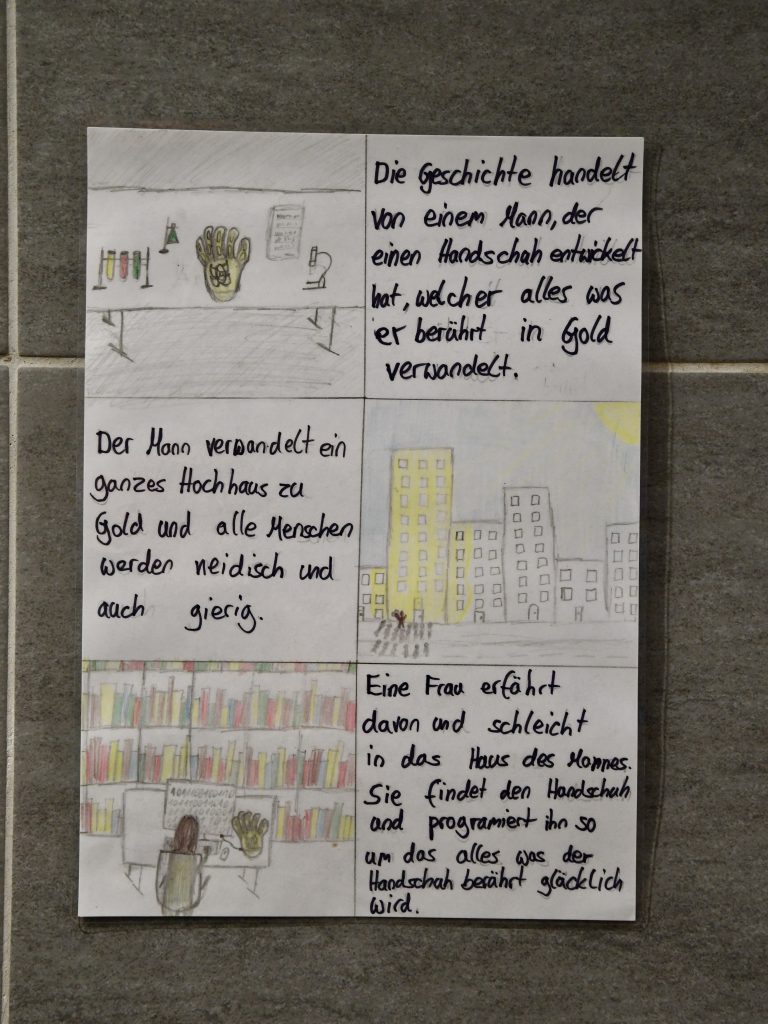 Die Geschichte handelt
von einem Mann, der
einen Handschuh entwickelt
hat, welcher alles was
er berührt in Gold
verwandelt.
Der Mann verwandelt ein
ganzes Hochhaus zu
Gold und alle Menschen
werden neidisch und
auch gierig.
1011001001010
Eine Frau erfährt
davon und schleicht
in das Haus des Mannes.
Sie findet den Handschuh
und programiert ihn so
um das alles was der
Handschuh berührt glücklich
wird.